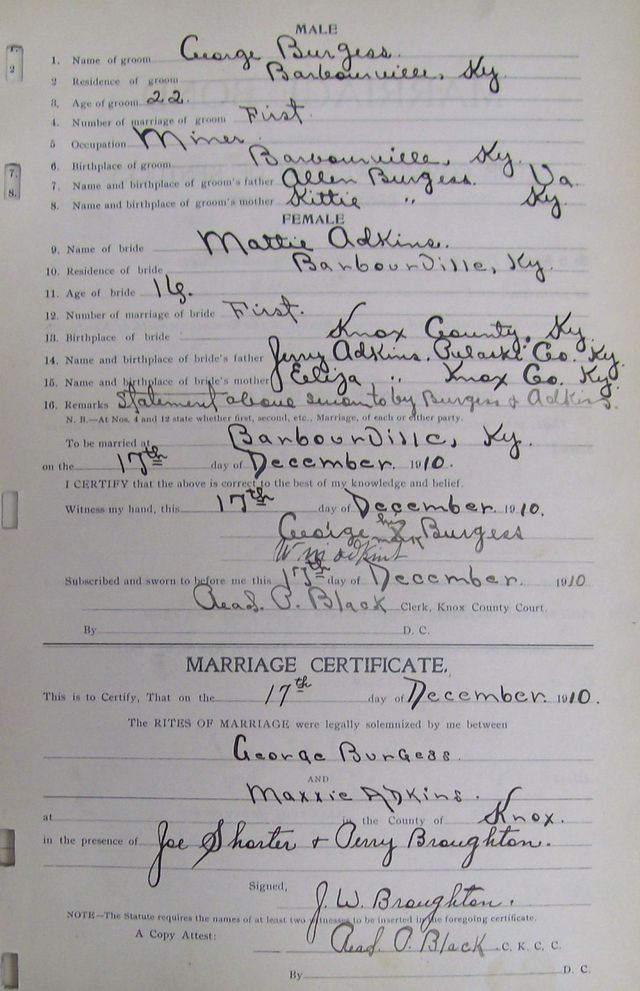 MALE
1. Name of groom George Burgess.
2 Residence of groom Barbourville, Ky.
3. Age of groom 22.
4. Number of marriage of groom First.
5 Occupation Miner.
6. Birthplace of groom Barbourville, Ky.
7. Name and birthplace of groom's father Allen Burgess. Va.
8. Name and birthplace of groom's mother Kittie " Ky.
FEMALE
9. Name of bride Mattie Adkins.
10. Residence of bride Barbourville, Ky.
11. Age of bride 16.
12. Number of marriage of bride First.
13. Birthplace of bride Knox County, Ky.
14. Name and birthplace of bride's father Jerry Adkins. Pulaski Co. Ky.
15. Name and birthplace of bride's mother Eeliza " Knox Co. Ky.
16. Remarks Statement above sworn to by Burgess & Adkins.
N. B.—At Nos. 4 and 12 state whether first, second, etc., Marriage, of each or either party.
To be married at Barbourville, Ky.
on the 17th day of December. 1910.
I CERTIFY that the above is correct to the best of my knowledge and belief.
Witness my hand, this 17th day of December. 1910.
George his X mark Burgess
Wm adkins
Subscribed and sworn to before me this 17th day of December. 1910
Read. P. Black Clerk, Knox County Court.
By D. C.
MARRIAGE CERTIFICATE.
This is to Certify, That on the 17th day of December. 1910.
The RITES OF MARRIAGE were legally solemnized by me between
George Burgess.
AND
Maxxie Adkins.
at in the County of Knox.
in the presence of Joe Shorter & Perry Broughton.
Signed, J. W. Broughton.
NOTE—The Statute requires the names of at least two witnesses to be inserted in the foregoing certificate.
A Copy Attest: Read. P. Black C. K. C. C.
By D. C.
1.
2
7.
8.